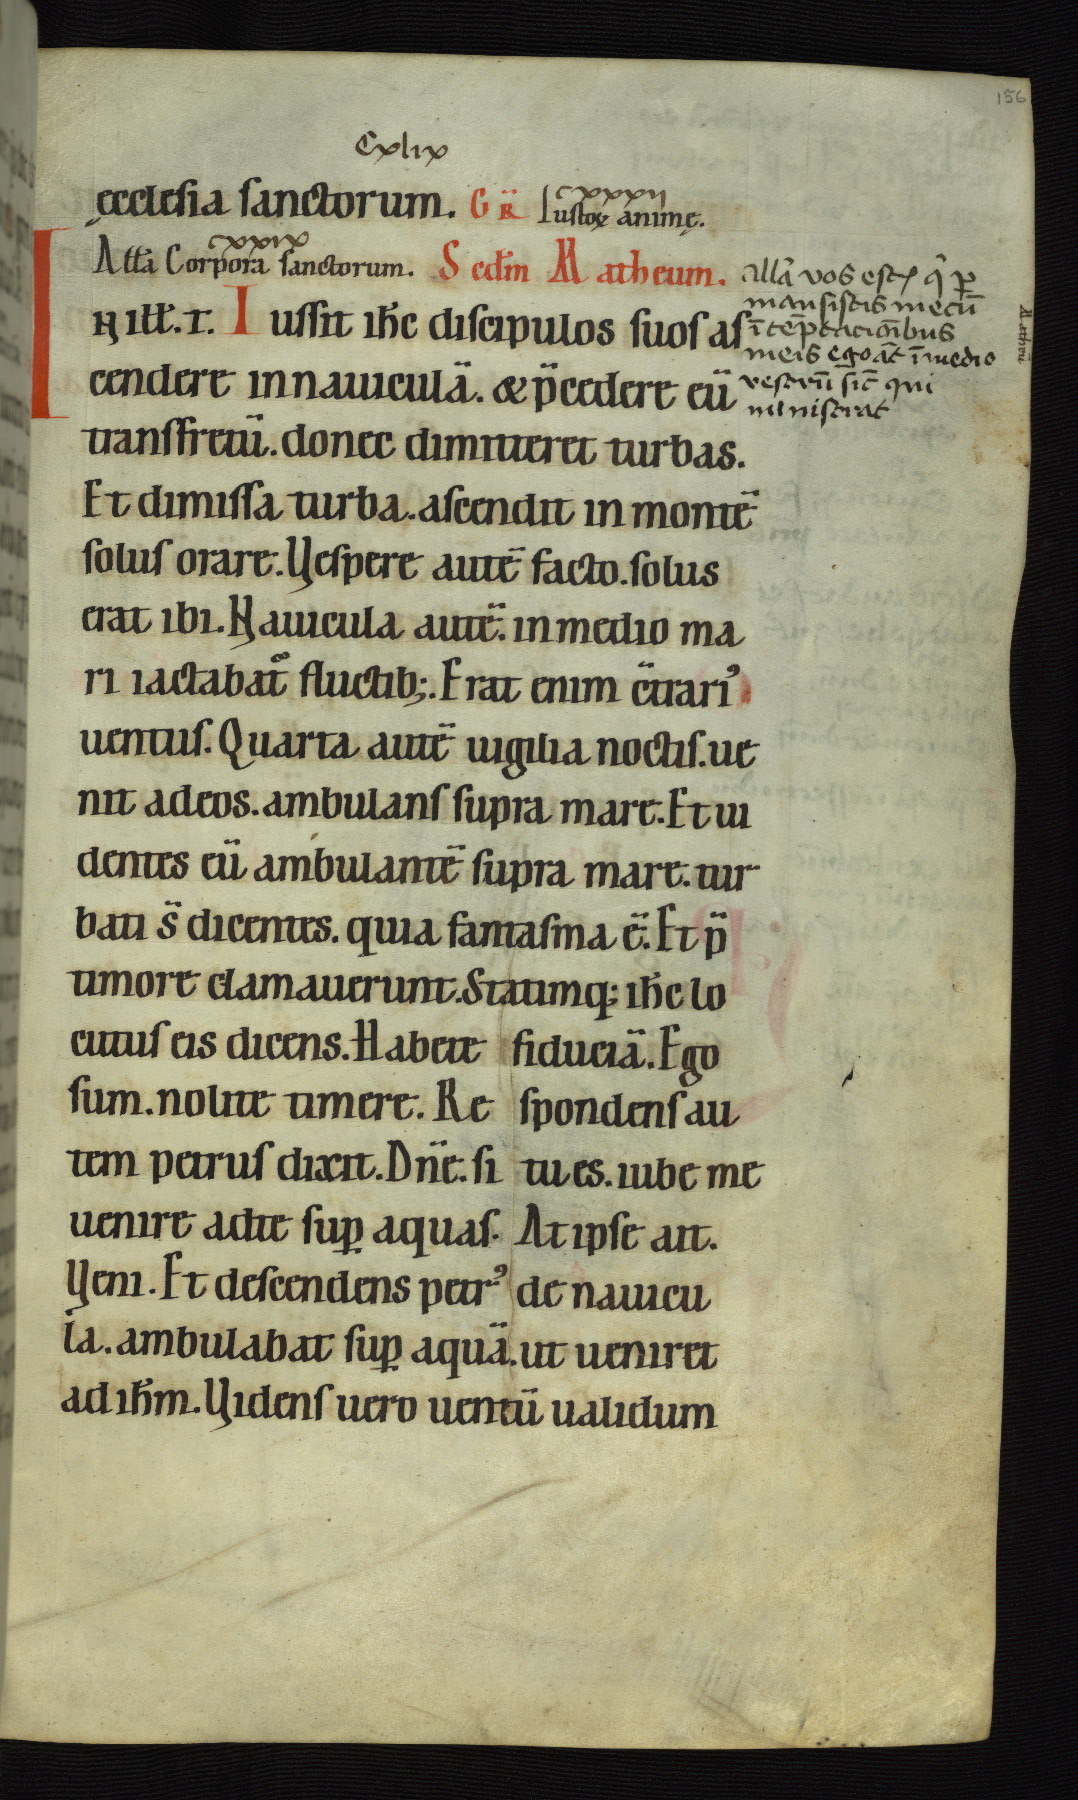 156
Cxlix
ęcclesia sanctorum. GR̃ Iustoꝝ animę.
cxxxii
cxxix
Alla Corpora sanctorum. Sedm̄ Matheum.
IN iłł. t. Iussit ihc̄ discipulos suos as
cendere in nauiculā. & p̄cedere eū
transfretū. donec dimitteret turbas.
Et dimissa turba. ascendit in montē
solus orare. Vespere autē facto. solus
erat ibi. Nauicula autē. in medio ma
ri iactabat᷑ fluctib;. Erat enim c̄trari᾽
uentus. Quarta autē uigilia noctis. ue
nit ad eos. ambulans supra mare. Et ui
dentes eū ambulantē supra mare. tur
bati s̄ dicentes. quia fantasma ē. Et p̄
timore clamauerunt. Statimq; ihc̄ lo
cutus eis dicens. Habete fiduciā. Ego
sum. nolite timere. Respondens au
tem petrus dixit. Dn̄e. si tu es. iube me
uenire ad te sup̱ aquas. At ipse ait.
Veni. Et descendens petr᾽ de nauicu
la. ambulabat sup̱ aquā. ut ueniret
ad ihm̄. Videns uero uentū ualidum
allā vos estꝭ q̇ ꝑ
mansistis mecū
ī tēptacōibus
meis ego āt ī medio
vestrū sic̄ qui
ministrat
Matheū